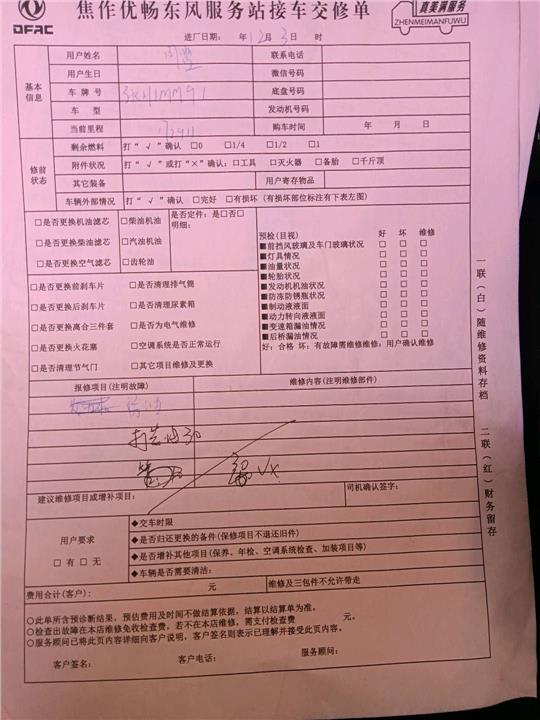 DFAC
焦作优畅东风服务站接车交修单
真美满服务
ZHENMEIMANFUWU
进厂日期： 年12月3日 时
基本信息
用户姓名 联系电话
用户生日 微信号码
车牌号 底盘号码
车型 发动机号码
当前里程 购车时间 年 月 日
修前状态
剩余燃料 打“√”确认 □0 □1/4 □1/2 □1
附件状况 打“√”或打“×”确认：□工具 □灭火器 □备胎 □千斤顶
其它装备 用户寄存物品
车辆外部情况 打“√”确认 □完好 □有损坏（有损坏部位标注有下表左图）
□是否更换机油滤芯 □柴油机油
□是否更换柴油滤芯 □汽油机油
□是否更换空气滤芯 □齿轮油
是否定件：是□否□
明细：
□是否更换前刹车片 □是否清理排气筒
□是否更换后刹车片 □是否清理尿素箱
□是否更换离合三件套 □是否为电气维修
□是否更换火花塞 □空调系统是否正常运行
□是否清理节气门 □其它项目维修及更换
预检(目视) 好 坏 维修
■前挡风玻璃及车门玻璃状况 □ □ □
■灯具情况 □ □ □
■油量状况 □ □ □
■轮胎状况 □ □ □
■发动机机油状况 □ □ □
■防冻防锈瓶状况 □ □ □
■制动液液面 □ □ □
■动力转向液液面 □ □ □
■变速箱漏油情况 □ □ □
■后桥漏油情况 □ □ □
好：合格 坏：有故障需维修维修：用户确认维修
报修项目(注明故障) 维修内容(注明维修部件)
建议维修项目或增补项目： 司机确认签字：
用户要求
□有□无
◆交车时限
◆是否归还更换的备件(保修项目不退还旧件)
◆是否增补其他项目(保养、年检、空调系统检查、加装项目等)
◆车辆是否需要清洁：
费用合计(客户)： 元 维修及三包件不允许带走
○此单所含预诊断结果，预估费用及时间不做结算依据，结算以结算单为准。
○检查出故障在本店维修免收检查费，若不在本店维修，需支付检查费 元。
○服务顾问已将此页内容详细向客户说明，客户签名则表示已理解并接受此页内容。
客户签名： 客户电话： 服务顾问：
一联（白）随维修资料存档 二联（红）财务留存